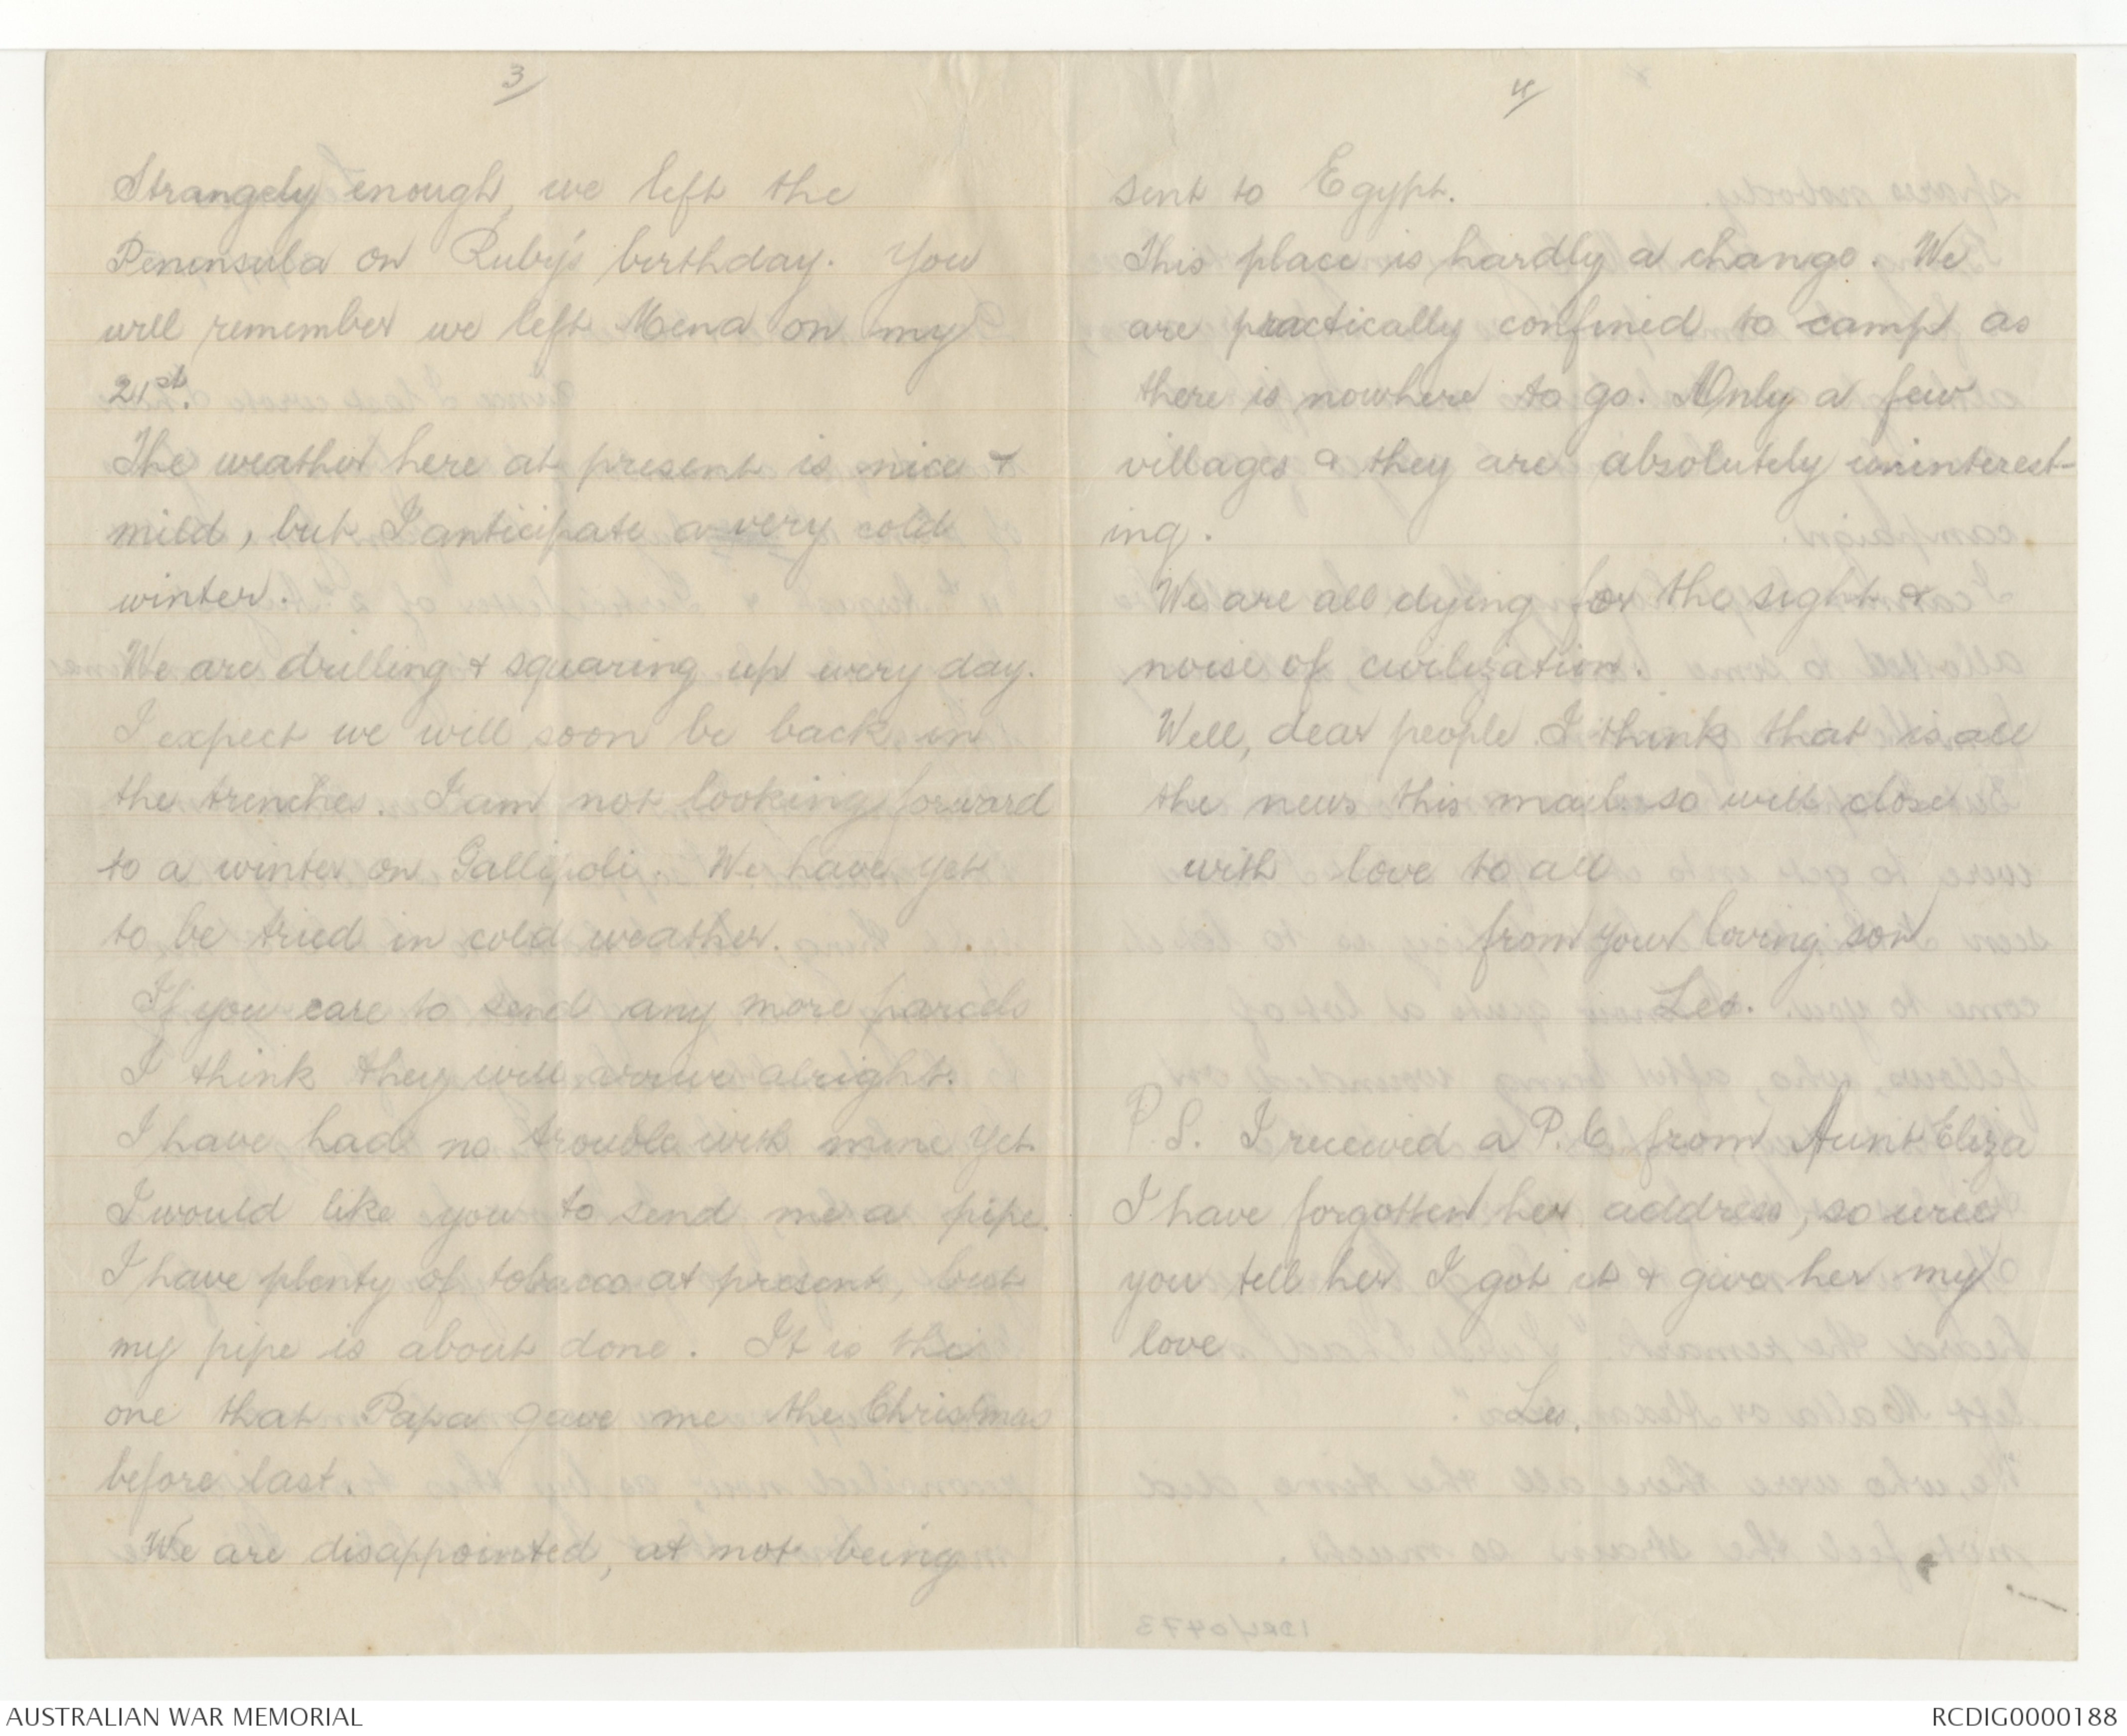 3/
Strangely enough, we left the
Peninsula on Ruby's birthday. You
will remember we left Mena on my
21st.
The weather here at present is nice &
mild, but I anticipate a very cold
winter.
We are drilling & squaring up every day.
I expect we will soon be back in
the trenches. I am not looking forward
to a winter on Gallipoli. We have yet
to be tried in cold weather.
If you care to send any more parcels
I think they will arrive alright.
I have had no trouble with mine yet.
I would like you to send me a pipe.
I have plenty of tobacco at present, but
my pipe is about done. It is the
one that Papa gave me the Christmas
before last.
We are disappointed, at not being
4/
sent to Egypt.
This place is hardly a change. We
are practically confined to camp as
there is nowhere to go. Only a few
villages & they are absolutely uninterest-
ing.
We are all dying for the sight &
noise of civilization.
Well, dear people I think that is all
the news this mail so will close
with love to all
from your loving son
Les.
P.S. I received a P.C. from Aunt Eliza
I have forgotten her address, so will
you tell her I got it & give her my
love
Les.
AUSTRALIAN WAR MEMORIAL
RCDIG0000188